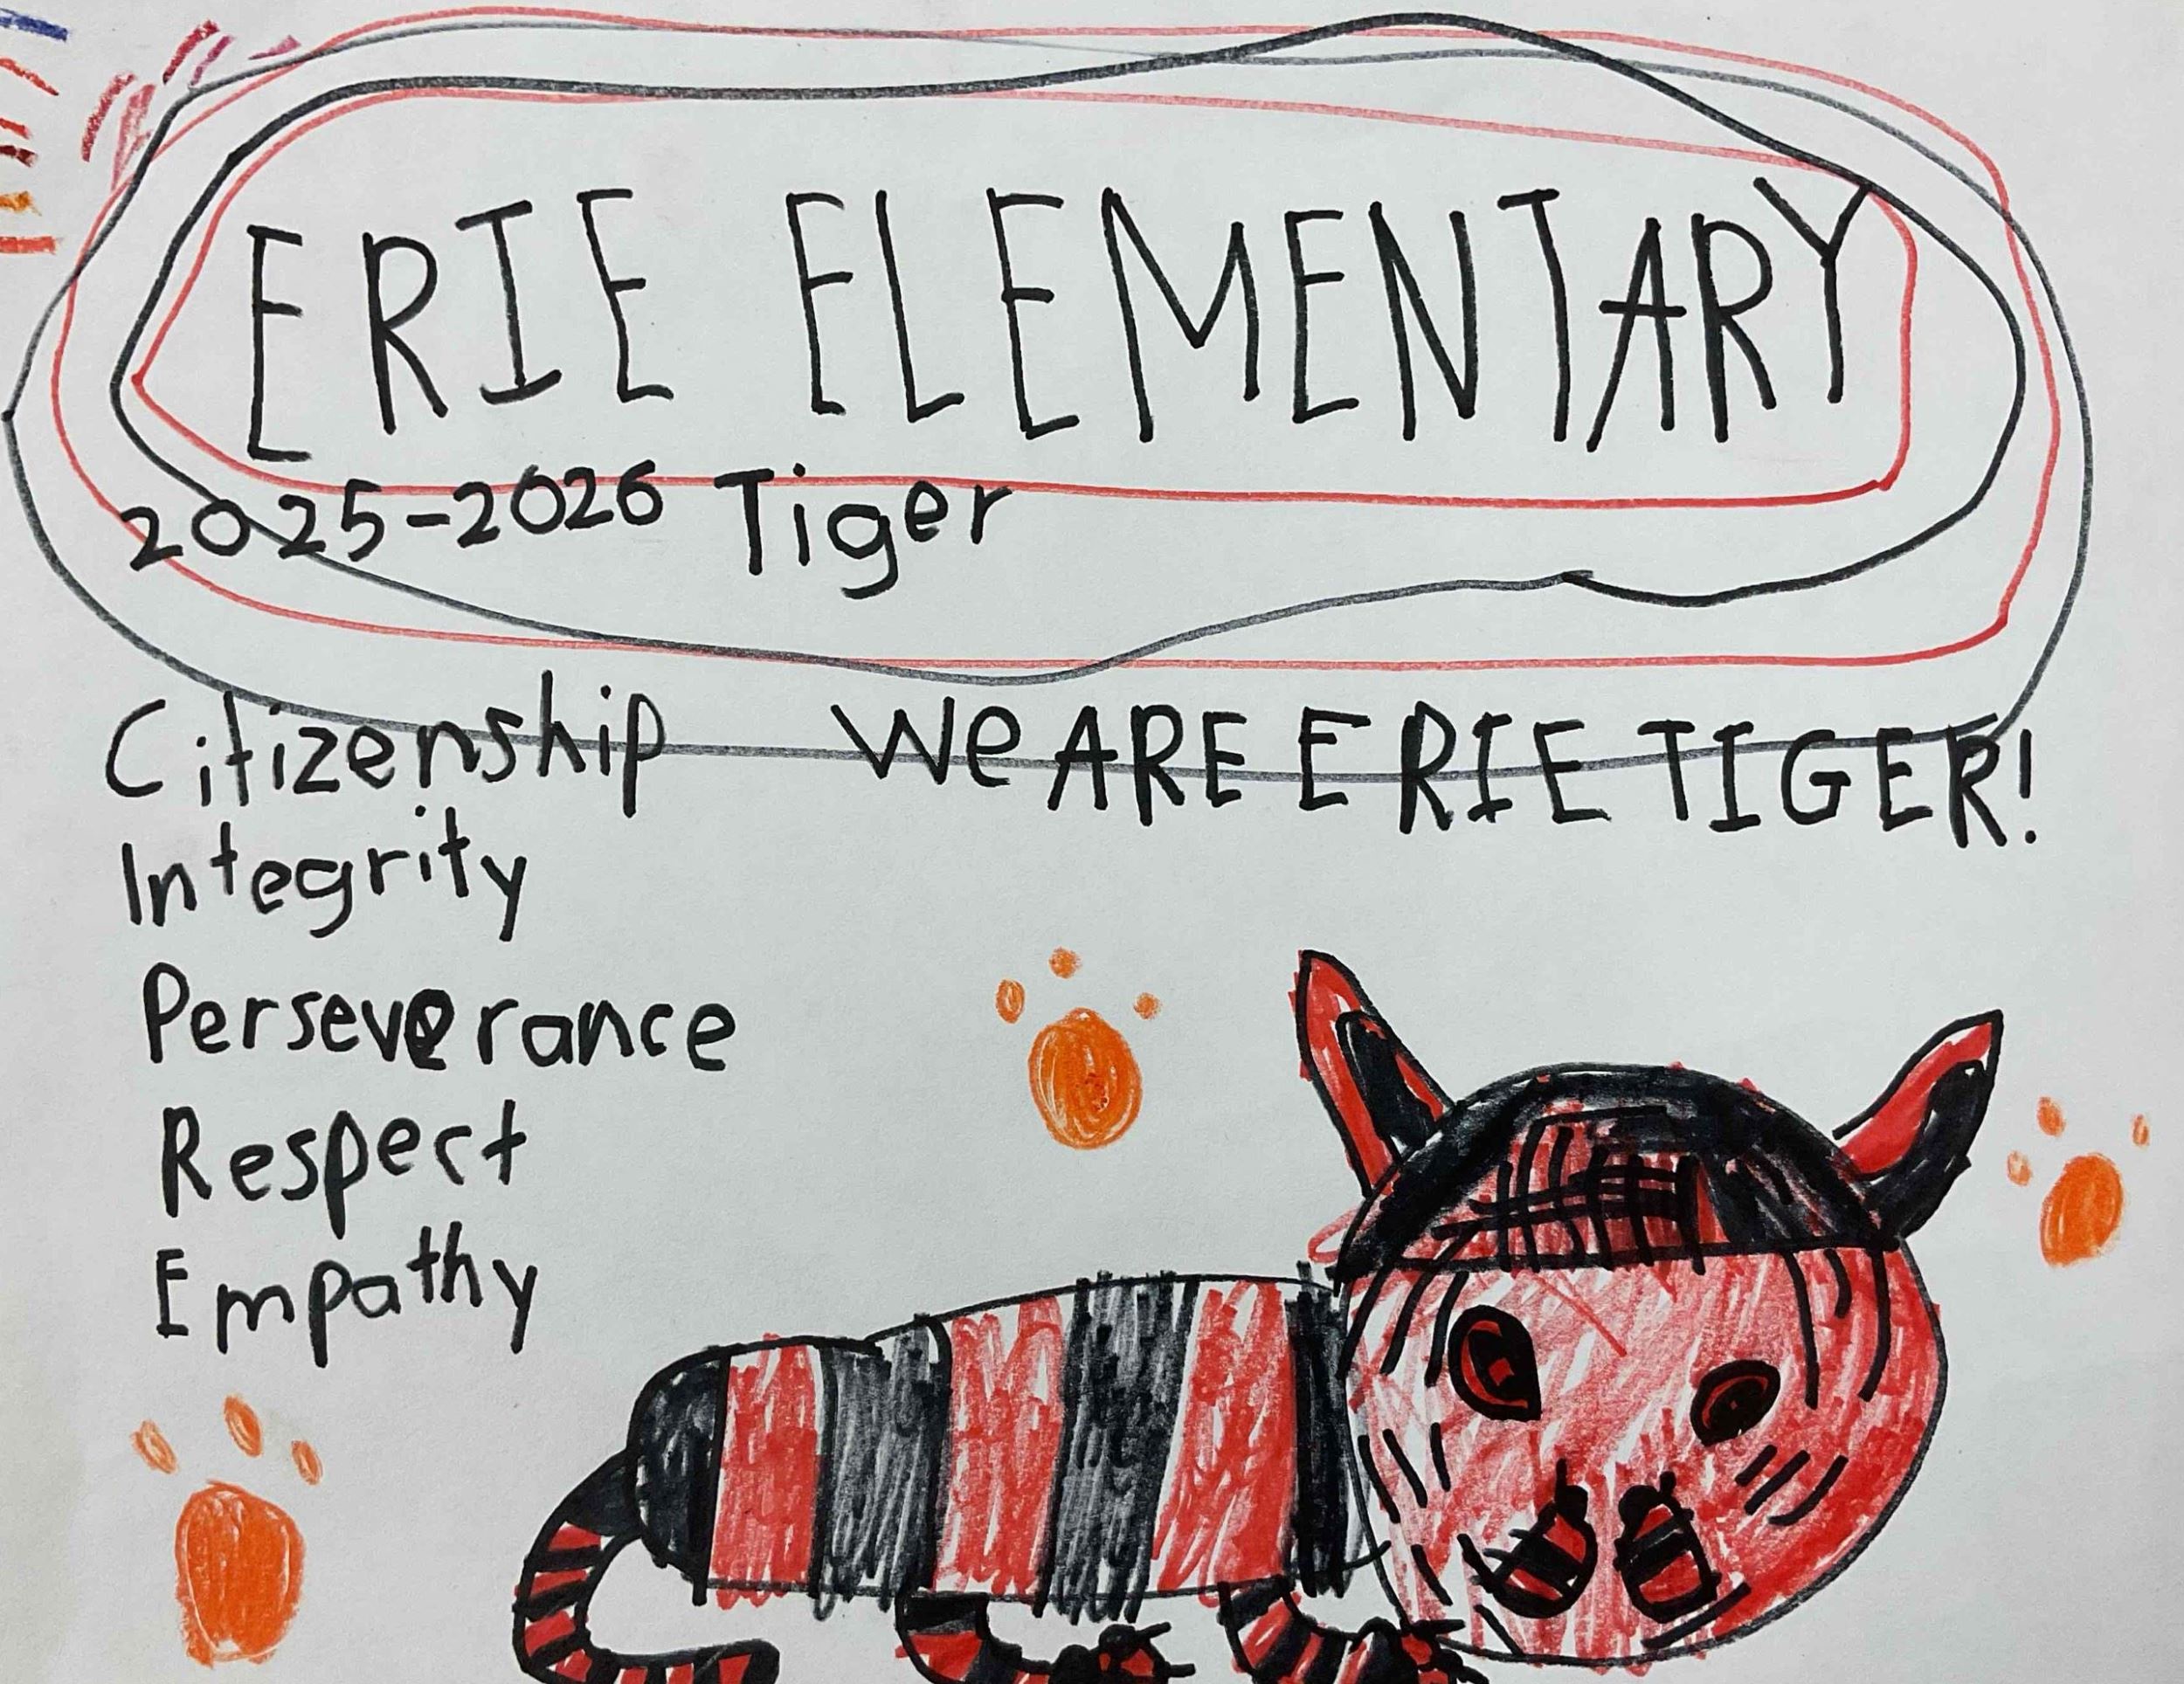 ERIE ELEMENTARY
2025-2026 Tiger
Citizenship
We ARE ERIE TIGER!
Integrity
Perseverance
Respect
Empathy